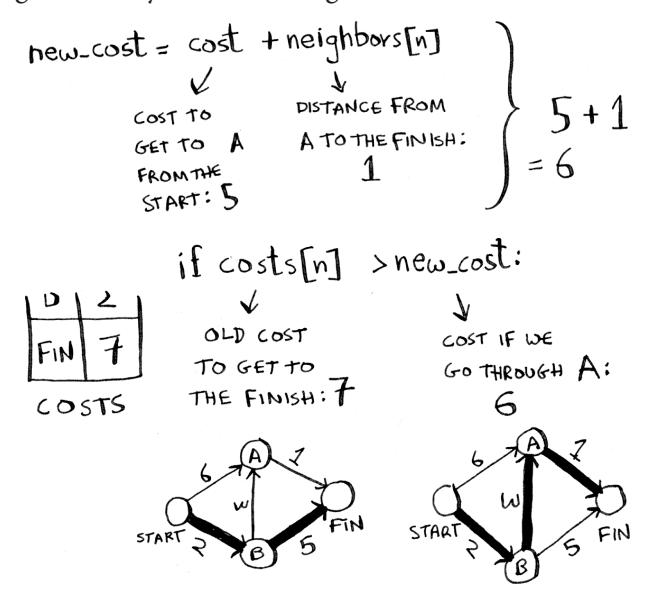 new_cost = cost + neighbors[n]
COST TO
GET TO A
FROM THE
START: 5
DISTANCE FROM
A TO THE FINISH:
1
5 + 1
= 6
if costs[n] > new_cost:
2
FIN 7
COSTS
OLD COST
TO GET TO
THE FINISH: 7
COST IF WE
GO THROUGH A:
6
6 A 1
START 2 B 5 FIN
6 A 1
START 2 B 5 FIN